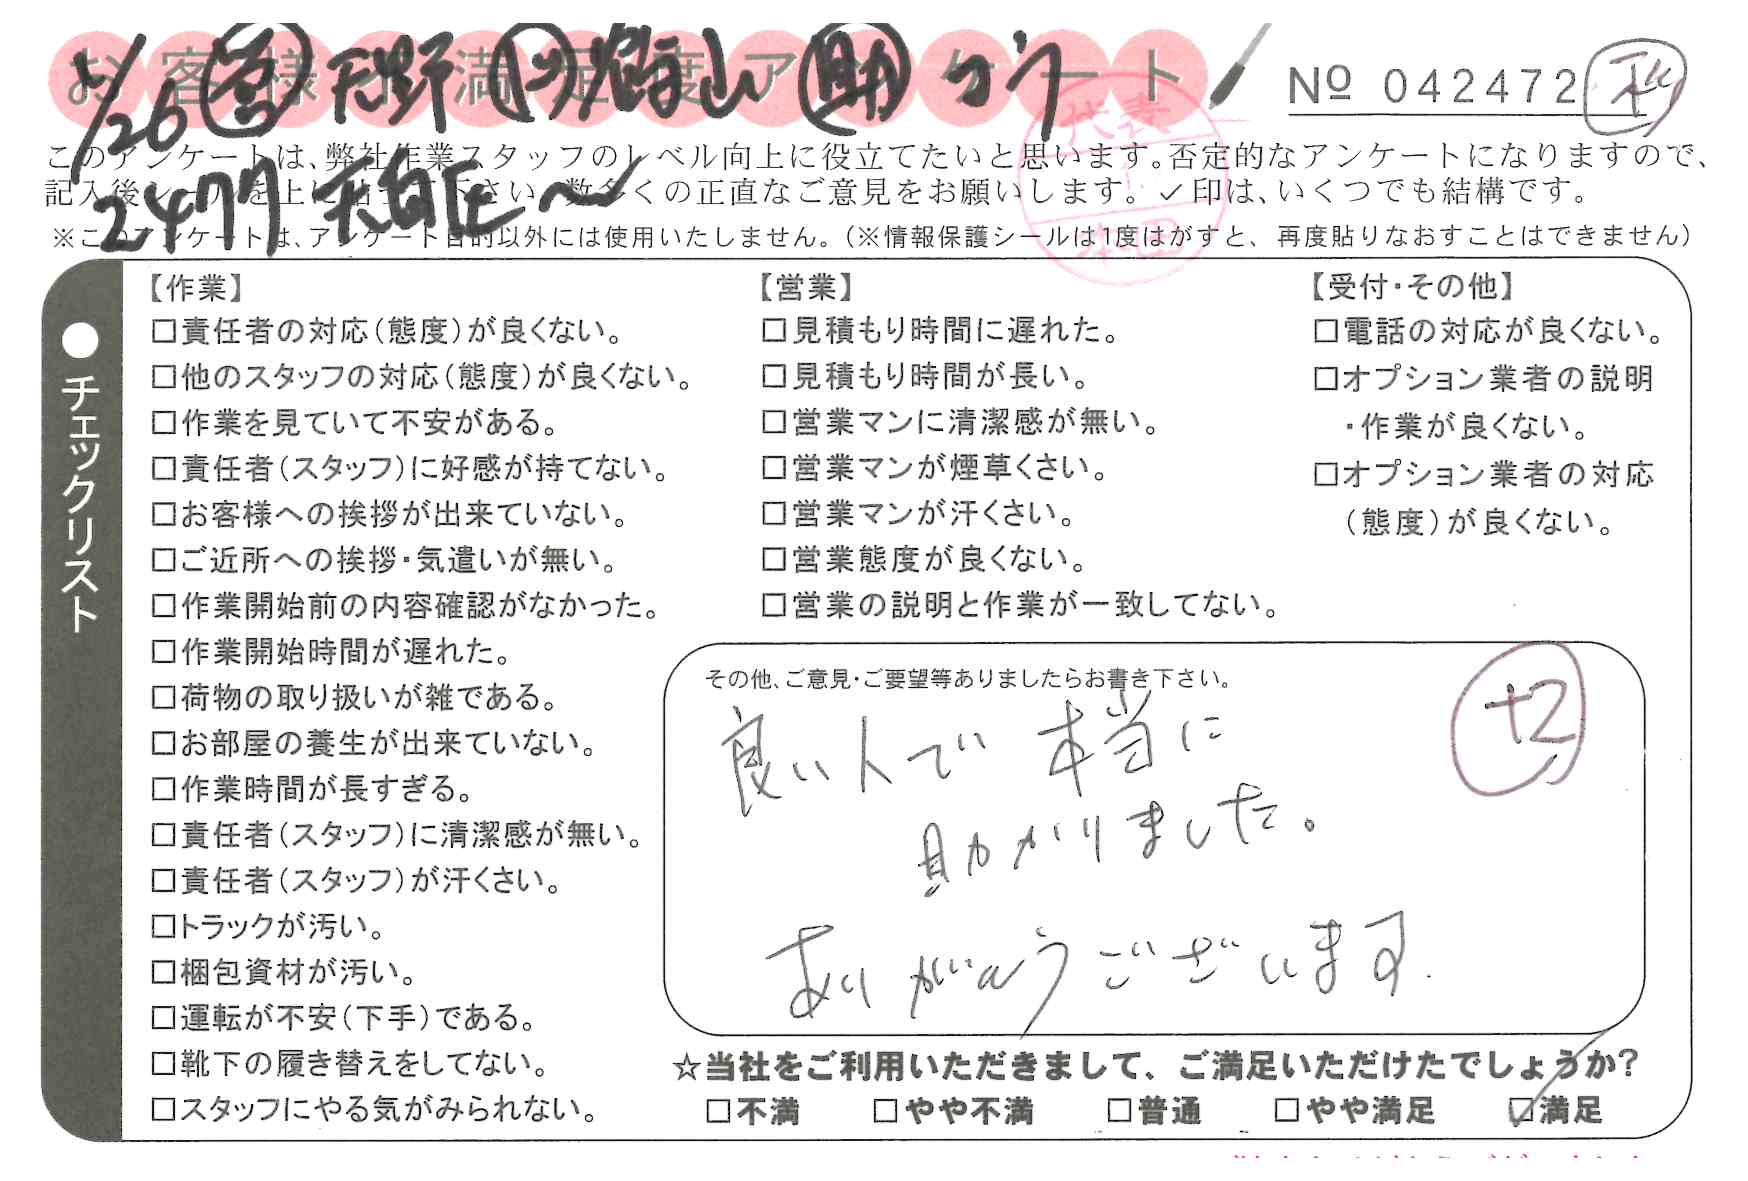 お客様不満足度アンケート
No 042472
4/26 営 天野 館山 助 コウ
2477 天白区〜
代表
本田
このアンケートは、弊社作業スタッフのレベル向上に役立てたいと思います。否定的なアンケートになりますので、
記入後シールを上に貼って下さい。数多くの正直なご意見をお願いします。✓印は、いくつでも結構です。
※このアンケートは、アンケート目的以外には使用いたしません。(※情報保護シールは1度はがすと、再度貼りなおすことはできません)
●チェックリスト
【作業】
□責任者の対応(態度)が良くない。
□他のスタッフの対応(態度)が良くない。
□作業を見ていて不安がある。
□責任者(スタッフ)に好感が持てない。
□お客様への挨拶が出来ていない。
□ご近所への挨拶・気遣いが無い。
□作業開始前の内容確認がなかった。
□作業開始時間が遅れた。
□荷物の取り扱いが雑である。
□お部屋の養生が出来ていない。
□作業時間が長すぎる。
□責任者(スタッフ)に清潔感が無い。
□責任者(スタッフ)が汗くさい。
□トラックが汚い。
□梱包資材が汚い。
□運転が不安(下手)である。
□靴下の履き替えをしてない。
□スタッフにやる気がみられない。
【営業】
□見積もり時間に遅れた。
□見積もり時間が長い。
□営業マンに清潔感が無い。
□営業マンが煙草くさい。
□営業マンが汗くさい。
□営業態度が良くない。
□営業の説明と作業が一致してない。
【受付・その他】
□電話の対応が良くない。
□オプション業者の説明
・作業が良くない。
□オプション業者の対応
(態度)が良くない。
その他、ご意見・ご要望等ありましたらお書き下さい。
+2
良い人で 本当に
助かりました。
ありがとうございます.
☆当社をご利用いただきまして、ご満足いただけたでしょうか?
□不満 □やや不満 □普通 □やや満足 ☑満足